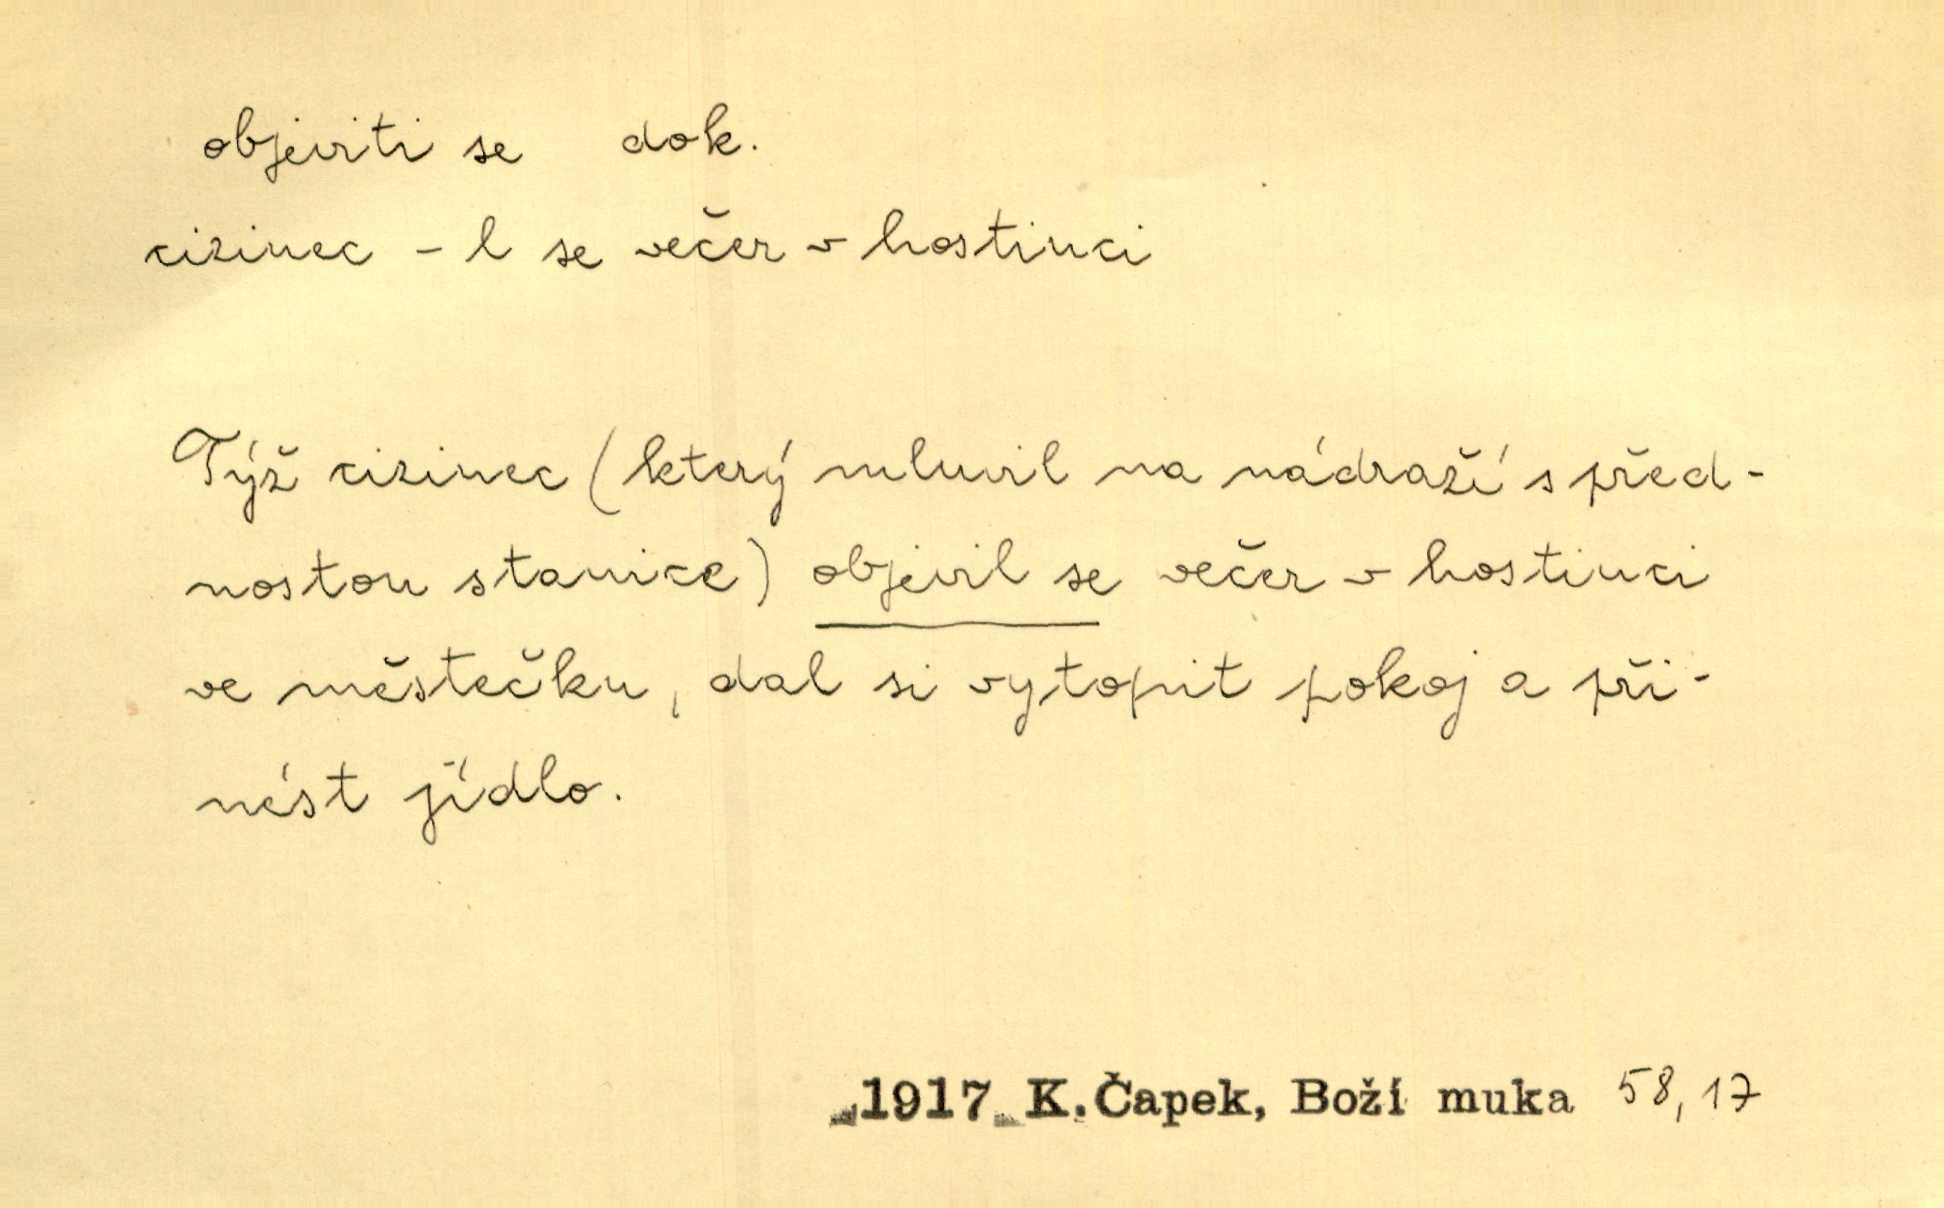 objeviti se dok.
cizinec - l se večer v hostinci
Týž cizinec (který mluvil na nádraží s před-
nostou stanice) objevil se večer v hostinci
ve městečku, dal si vytopit pokoj a při-
nést jídlo.
1917 K. Čapek, Boží muka 58, 17